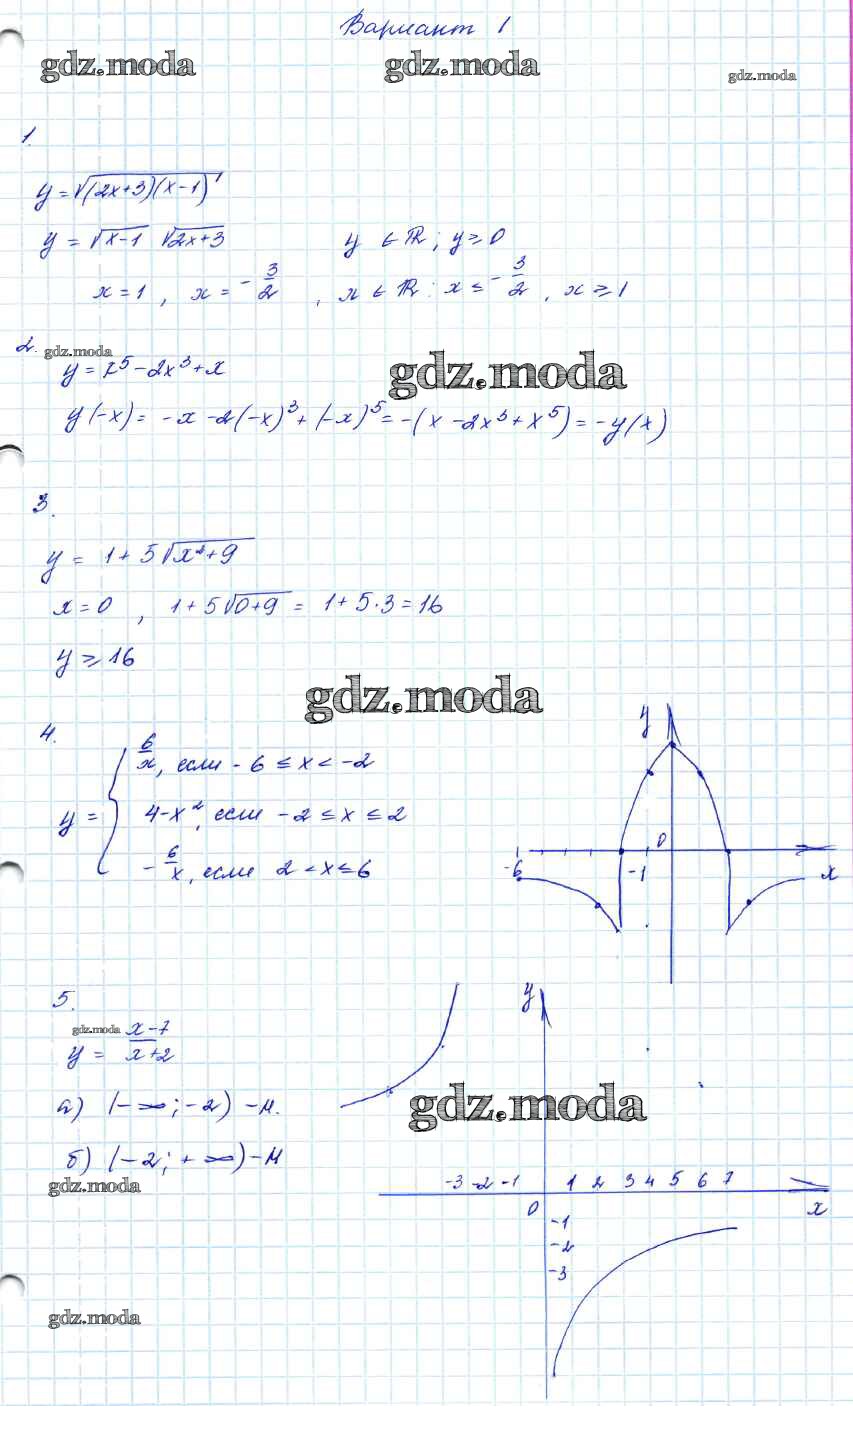 Вариант 1
gdz.moda gdz.moda gdz.moda
1.
y = √(2x+3)(x-1)
y = √x-1 √2x+3 y ∈ ℝ; y ≥ 0
x = 1, x = -3/2, x ∈ ℝ: x ≤ -3/2, x ≥ 1
2. gdz.moda
y = x⁵ - 2x³ + x
gdz.moda
y(-x) = -x - 2(-x)³ + (-x)⁵ = -(x - 2x³ + x⁵) = -y(x)
3.
y = 1 + 5√x²+9
x = 0, 1 + 5√0+9 = 1 + 5·3 = 16
y ≥ 16
gdz.moda
4.
y = { 6/x, если -6 ≤ x < -2
4-x², если -2 ≤ x ≤ 2
-6/x, если 2 < x ≤ 6
y
0
-6 -1 x
5.
gdz.moda
y = x-7/x+2
а) (-∞; -2) - м.
б) (-2; +∞) - м
gdz.moda
y
gdz.moda
-3 -2 -1 1 2 3 4 5 6 7
0 x
-1
-2
-3
gdz.moda